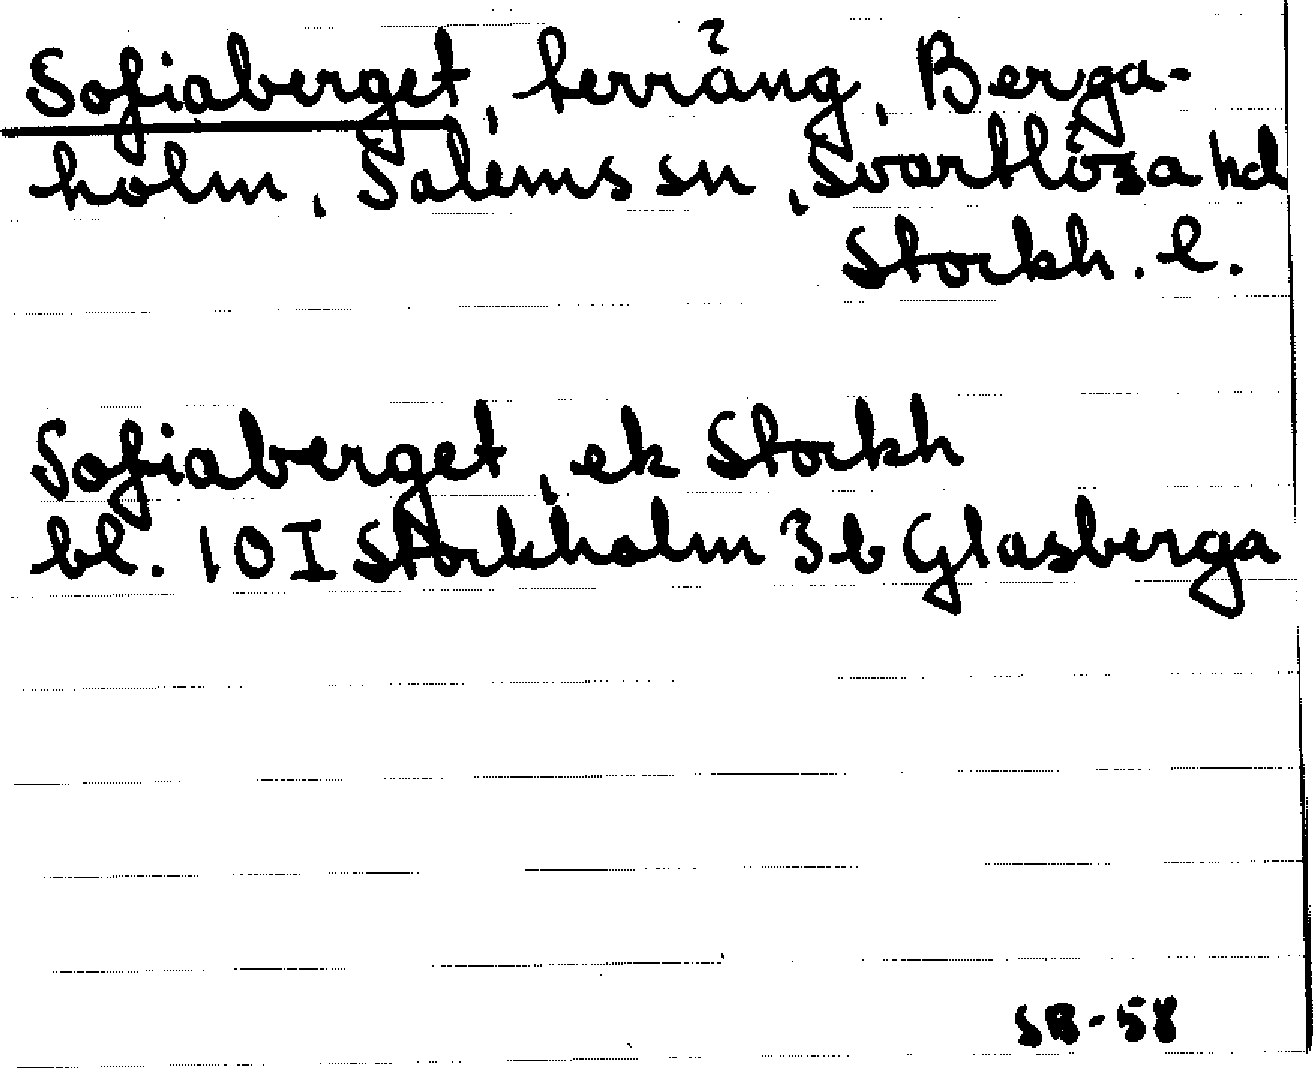 Sofiaberget, terräng, Berga-
holm, Salems sn, Svartlösa hd
Stockh. l.
Sofiaberget, ek Stockh
bl. 10I Stockholm 3b Glasberga
SB-58